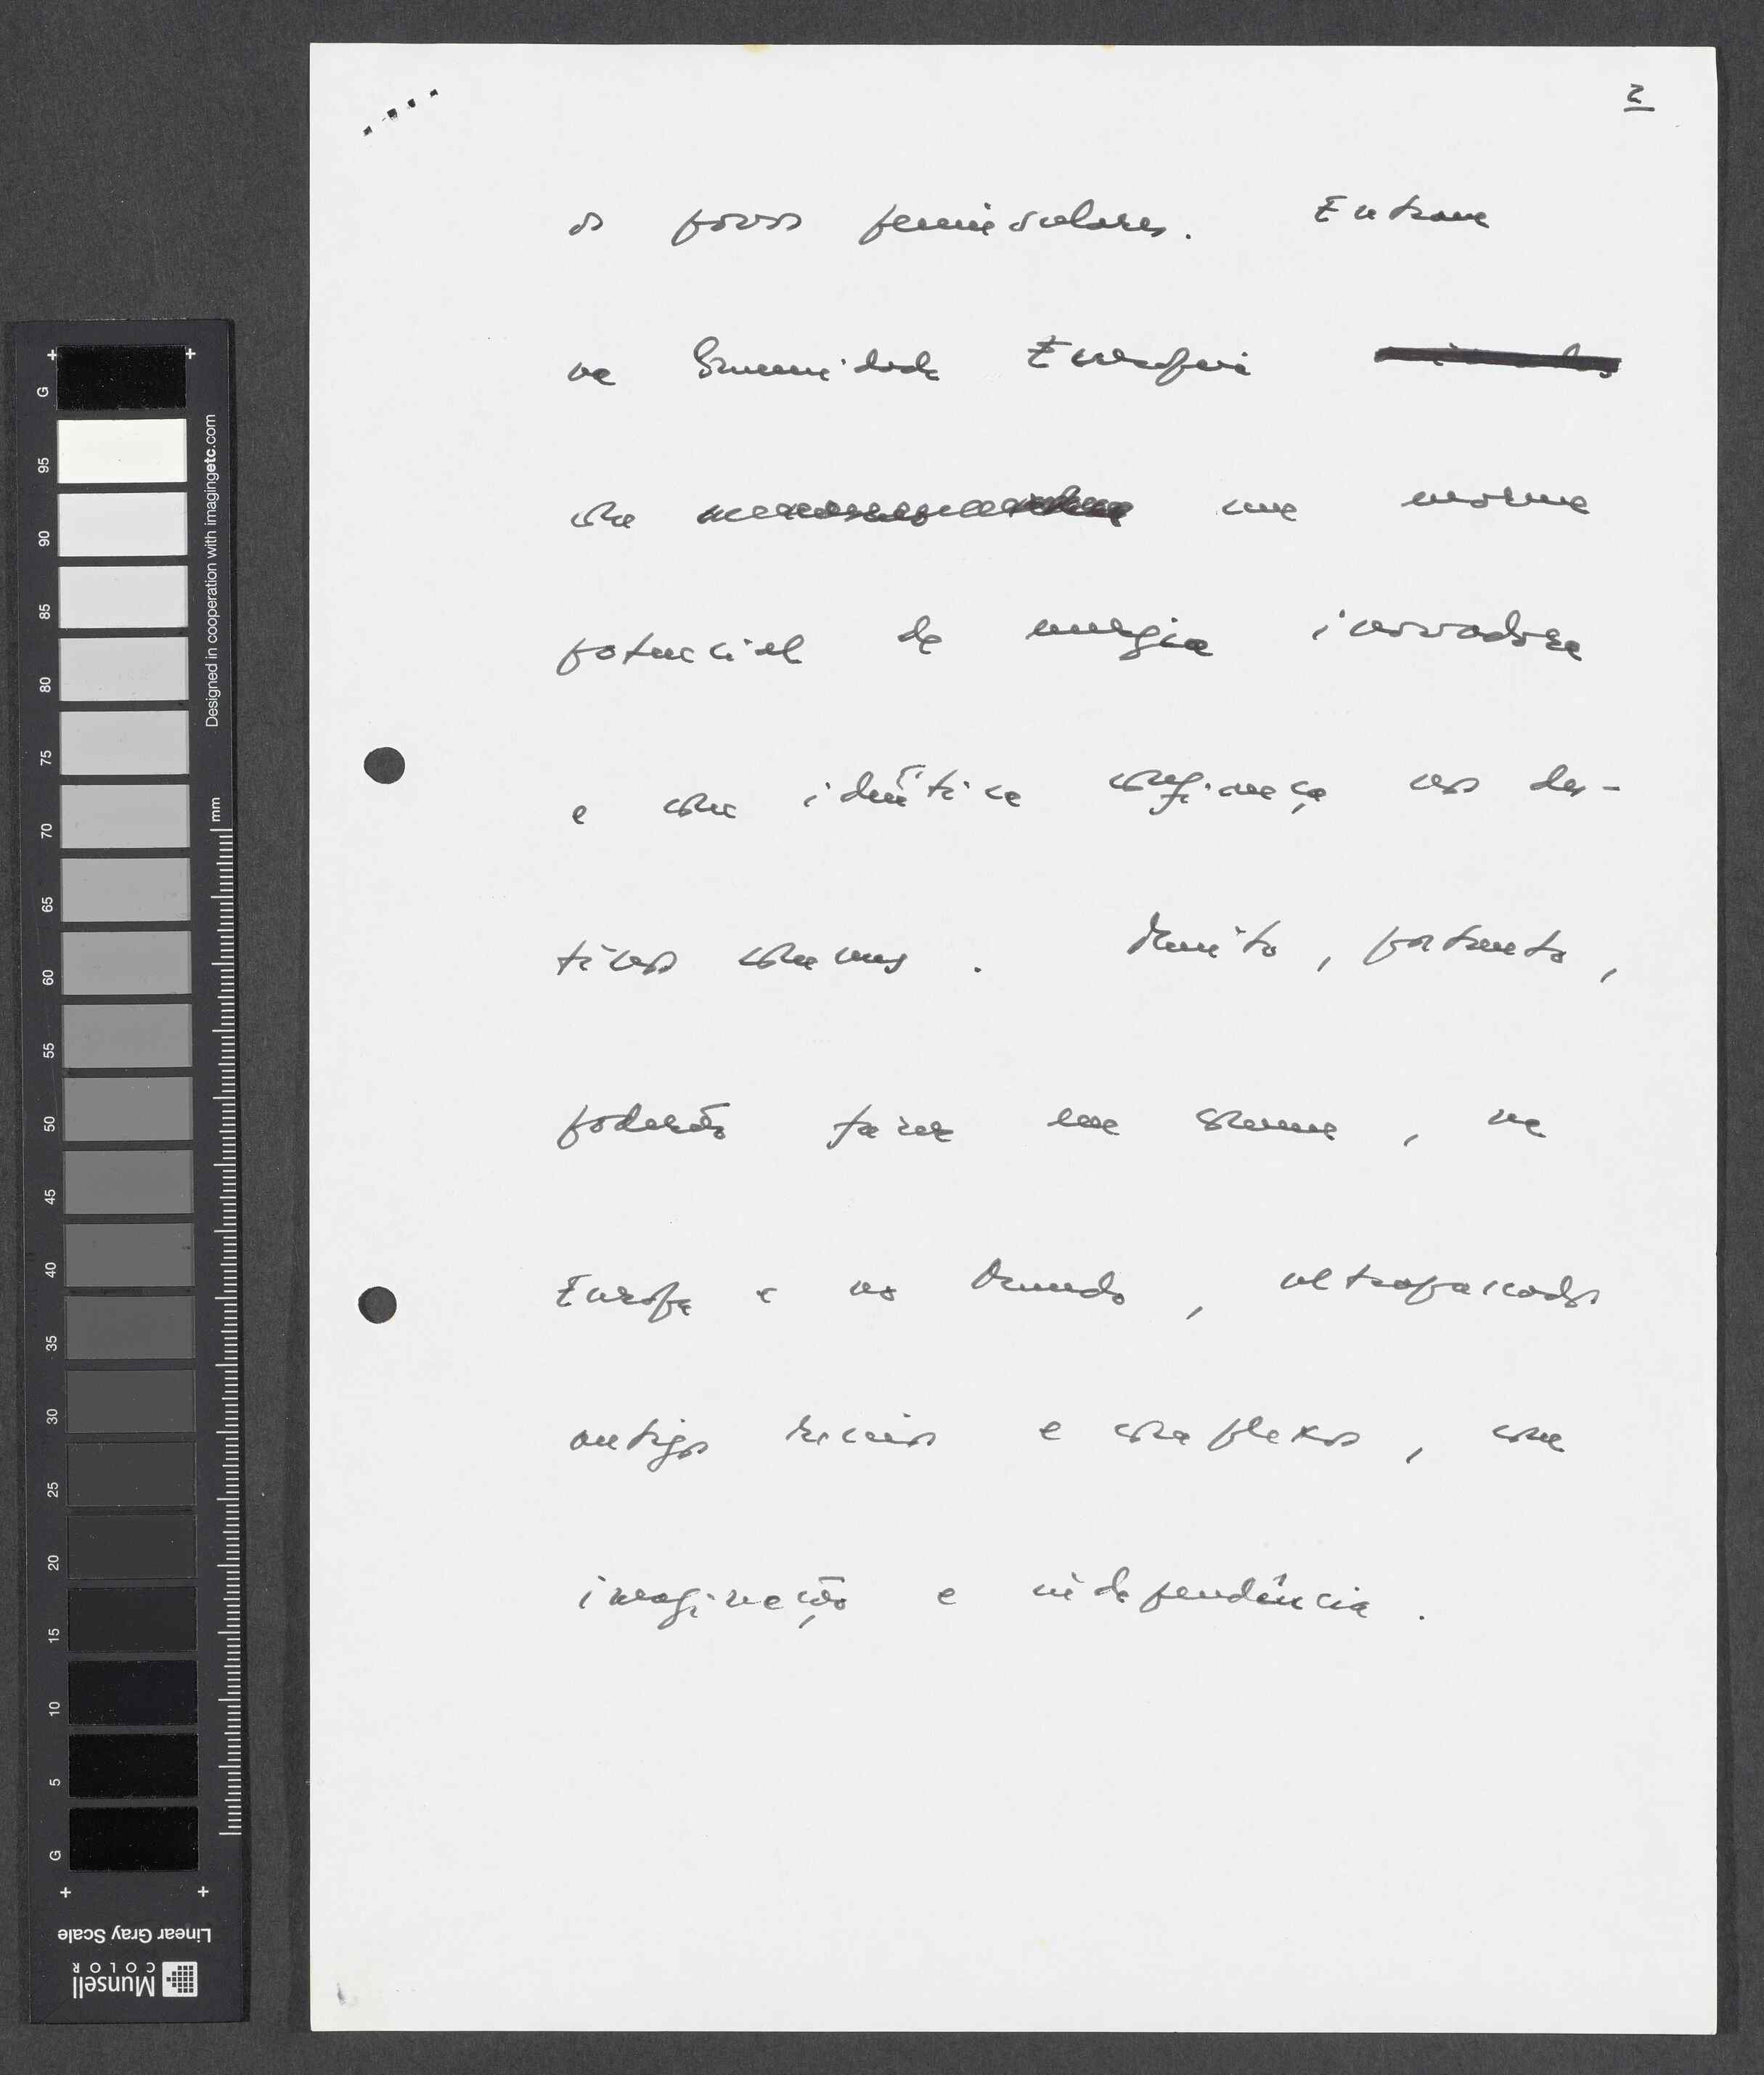 2
os povos peninsulares. Entram
na Comunidade Europeia
com um enorme
potencial de energia inovadora
e com idêntica confiança nos des-
tinos comuns. Muito, portanto,
poderão fazer em comum, na
Europa e no Mundo, ultrapassados
antigos receios e complexos, com
imaginação e independência.
G
95
90
85
80
75
70
65
60
55
50
45
40
35
30
25
20
15
10
5
G
Designed in cooperation with imagingetc.com
mm
Linear Gray Scale
Munsell
COLOR